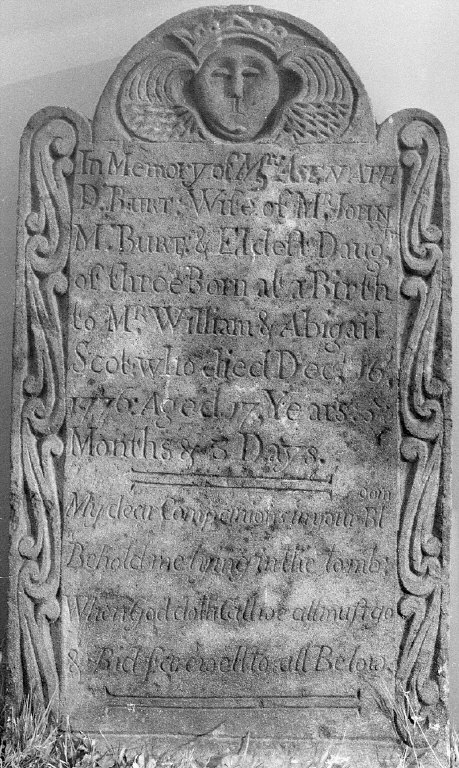 In Memory of Mrs. ASENATH
D. BURT: Wife of Mr. JOHN
M. BURT: & Eldest Daugt,
of three Born at a Birth
to Mr. William & Abigail
Scot: who died Decr. 16,
1776: Aged 17 Years: 5
Months & 5 Days.
oom
My dear Companions in your Bl
Behold me lying in the tomb:
When God doth Call we all must go
& Bid farewell to all Below